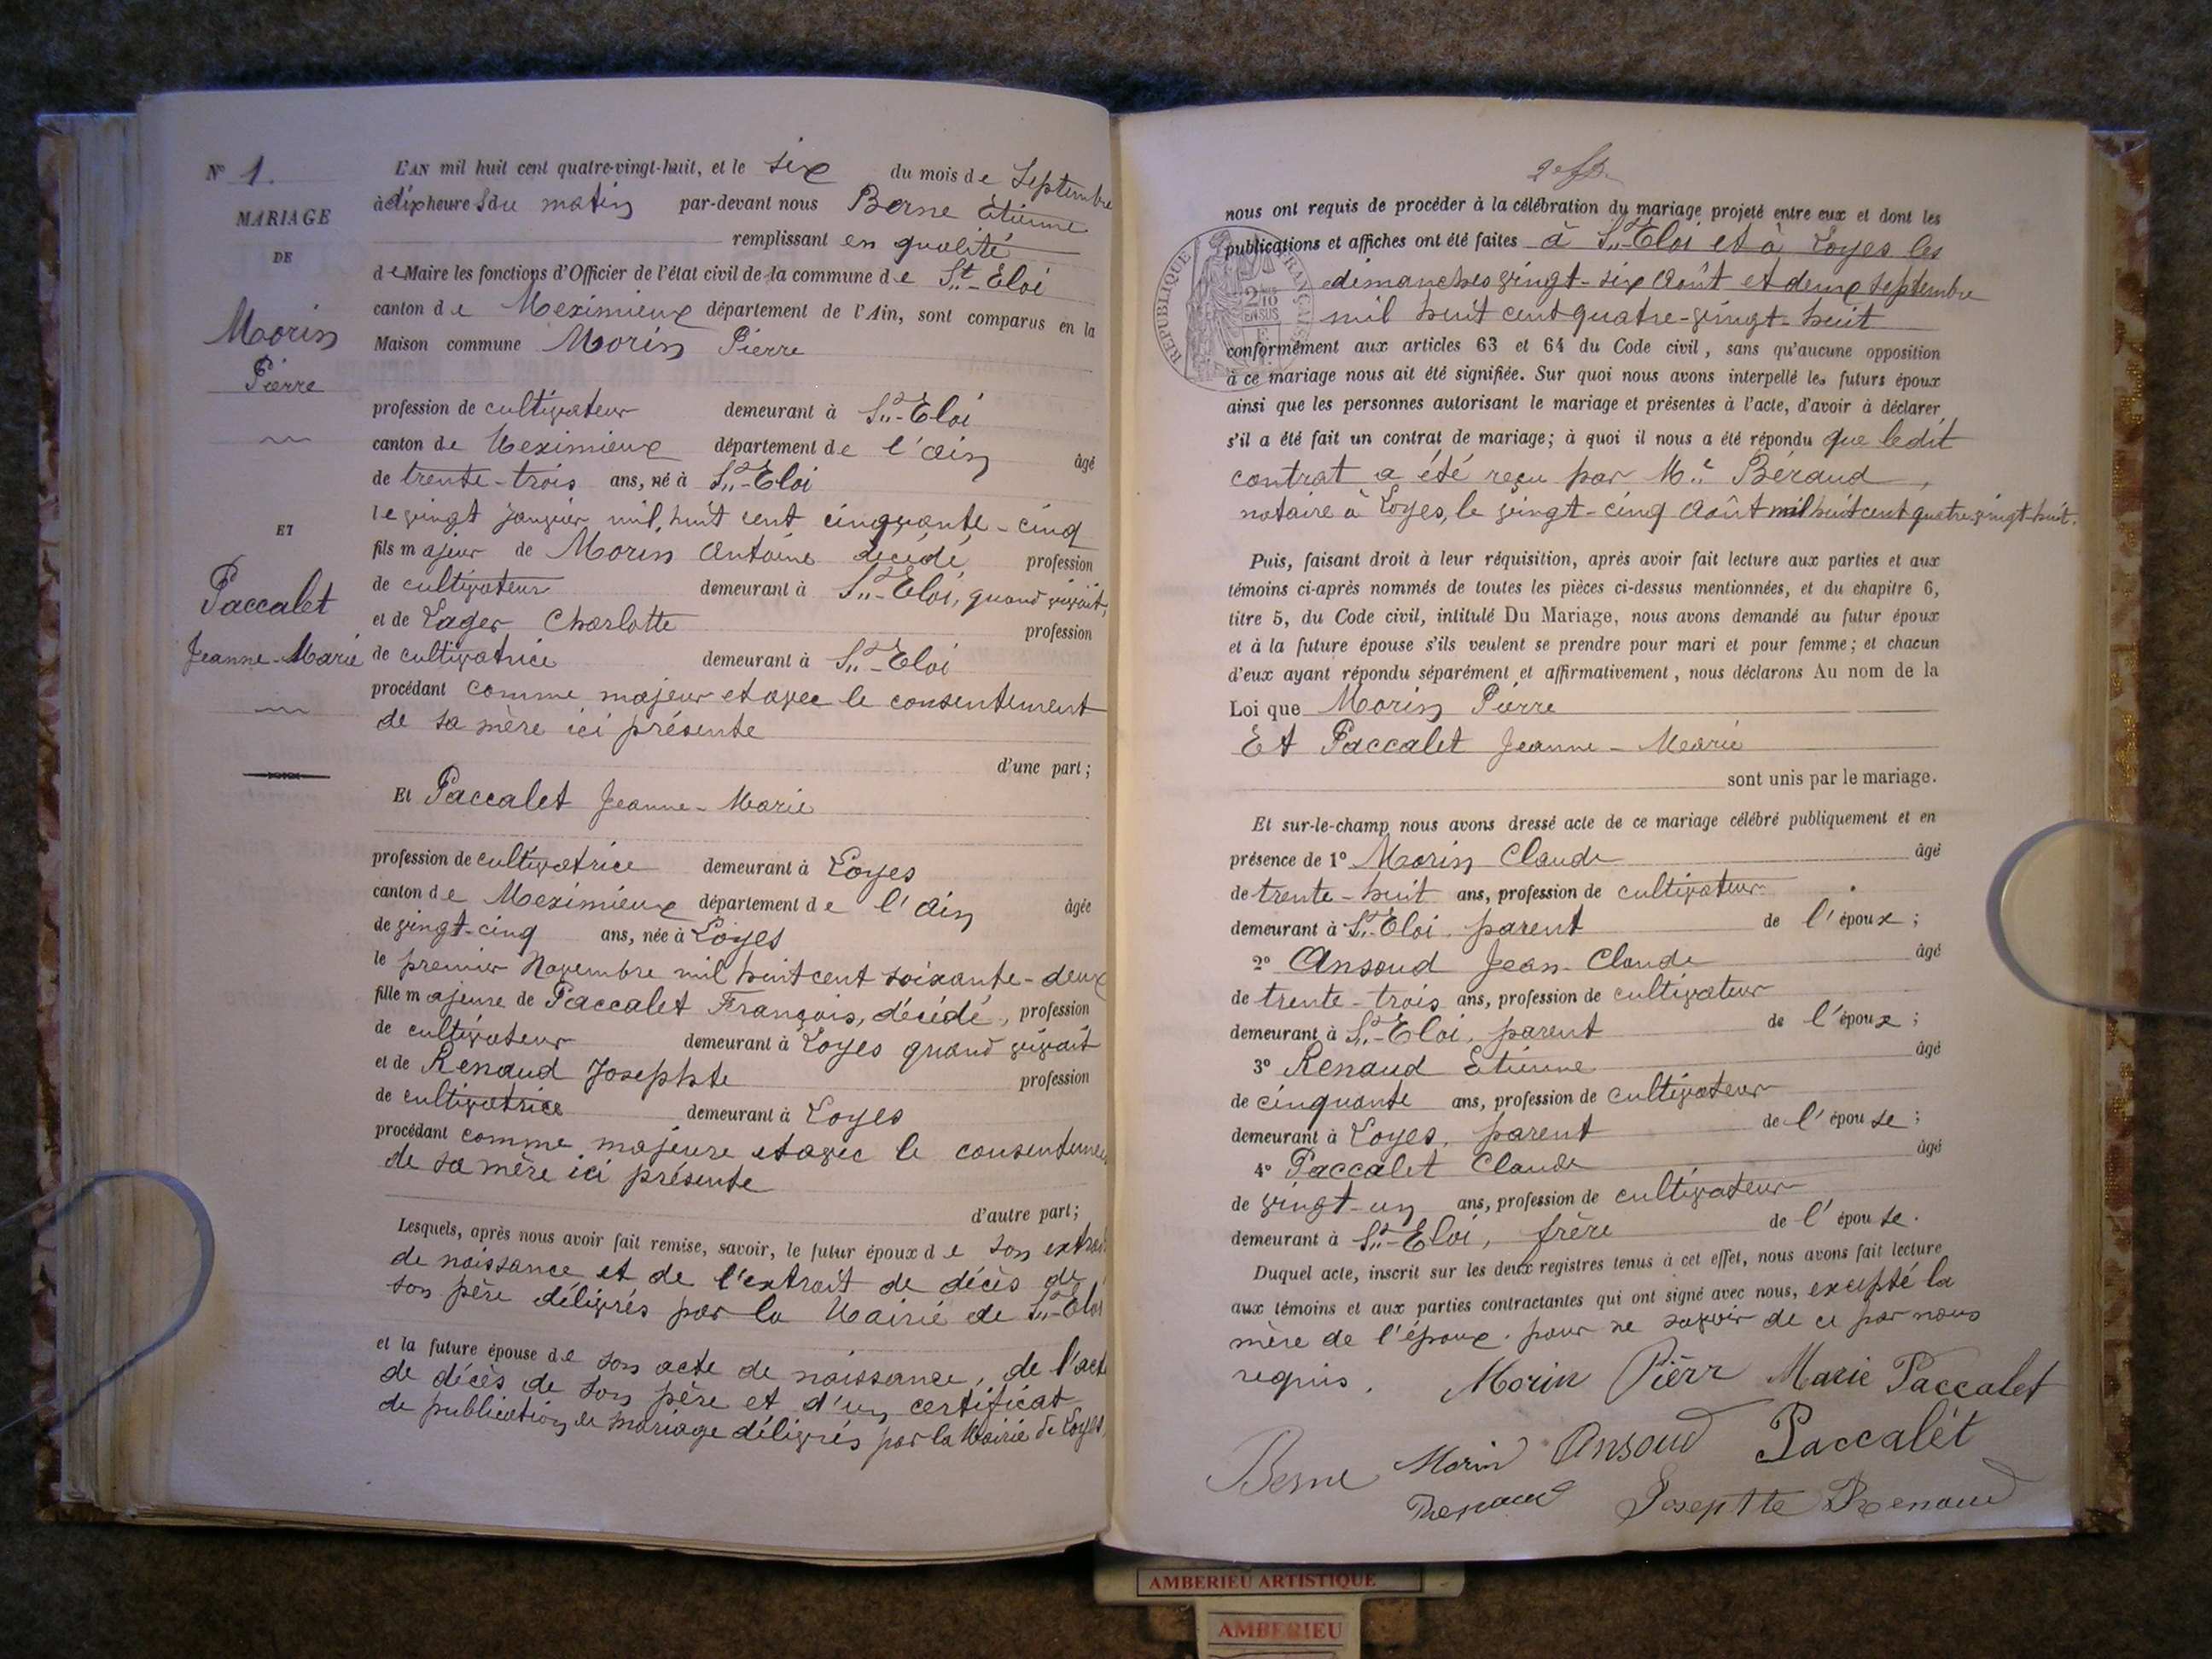 N° 1.
MARIAGE
DE
Morin
Pierre
ET
Paccalet
Jeanne-Marie
L'AN mil huit cent quatre-vingt-huit, et le six du mois de Septembre
à dix heures du matin par-devant nous Berne Etienne
remplissant en qualité
de Maire les fonctions d'Officier de l'état civil de la commune de St-Eloi
canton de Meximieux département de l'Ain, sont comparus en la
Maison commune Morin Pierre
profession de cultivateur demeurant à St-Eloi
canton de Meximieux département de l'Ain âgé
de trente-trois ans, né à St-Eloi
le vingt janvier mil huit cent cinquante-cinq
fils majeur de Morin Antoine décédé, profession
de cultivateur demeurant à St-Eloi, quand vivait,
et de Lager Charlotte profession
de cultivatrice demeurant à St-Eloi
procédant comme majeur et avec le consentement
de sa mère ici présente
d'une part;
Et Paccalet Jeanne-Marie
profession de cultivatrice demeurant à Loyes
canton de Meximieux département de l'Ain âgée
de vingt-cinq ans, née à Loyes
le premier Novembre mil huit cent soixante-deux
fille majeure de Paccalet François, décédé, profession
de cultivateur demeurant à Loyes quand vivait
et de Renaud Josephte profession
de cultivatrice demeurant à Loyes
procédant comme majeure et avec le consenteme
de sa mère ici présente
d'autre part;
Lesquels, après nous avoir fait remise, savoir, le futur époux de son extrait
de naissance et de l'extrait de décès de
son père délivrés par la Mairie de St-Eloi
et la future épouse de son acte de naissance, de l'acte
de décès de son père et d'un certificat
de publication de mariage délivrés par la Mairie de Loyes,
nous ont requis de procéder à la célébration du mariage projeté entre eux et dont les
publications et affiches ont été faites à St-Eloi et à Loyes les
dimanches vingt-six Août et deux septembre
mil huit cent quatre-vingt-huit
conformément aux articles 63 et 64 du Code civil, sans qu'aucune opposition
à ce mariage nous ait été signifiée. Sur quoi nous avons interpellé les futurs époux
ainsi que les personnes autorisant le mariage et présentes à l'acte, d'avoir à déclarer
s'il a été fait un contrat de mariage; à quoi il nous a été répondu que ledit
contrat a été reçu par Me Béraud,
notaire à Loyes, le vingt-cinq Août mil huit cent quatre-vingt-huit.
Puis, faisant droit à leur réquisition, après avoir fait lecture aux parties et aux
témoins ci-après nommés de toutes les pièces ci-dessus mentionnées, et du chapitre 6,
titre 5, du Code civil, intitulé Du Mariage, nous avons demandé au futur époux
et à la future épouse s'ils veulent se prendre pour mari et pour femme; et chacun
d'eux ayant répondu séparément et affirmativement, nous déclarons Au nom de la
Loi que Morin Pierre
Et Paccalet Jeanne-Marie
sont unis par le mariage.
Et sur-le-champ nous avons dressé acte de ce mariage célébré publiquement et en
présence de 1° Morin Claude âgé
de trente-huit ans, profession de cultivateur
demeurant à St-Eloi. parent de l'époux;
2° Ansoud Jean-Claude âgé
de trente-trois ans, profession de cultivateur
demeurant à St-Eloi, parent de l'époux;
3° Renaud Etienne âgé
de cinquante ans, profession de cultivateur
demeurant à Loyes, parent de l'épouse;
4° Paccalet Claude âgé
de vingt-un ans, profession de cultivateur
demeurant à St-Eloi, frère de l'épouse.
Duquel acte, inscrit sur les deux registres tenus à cet effet, nous avons fait lecture
aux témoins et aux parties contractantes qui ont signé avec nous, excepté la
mère de l'époux. pour ne savoir de ce par nous
requis.
Morin Pièrr Marie Paccalet
Berne Morin Ansoud Paccalét
Renaud Joseptte Renaud
REPUBLIQUE FRANÇAISE
2/10
EN SUS
AMBERIEU ARTISTIQUE
AMBERIEU